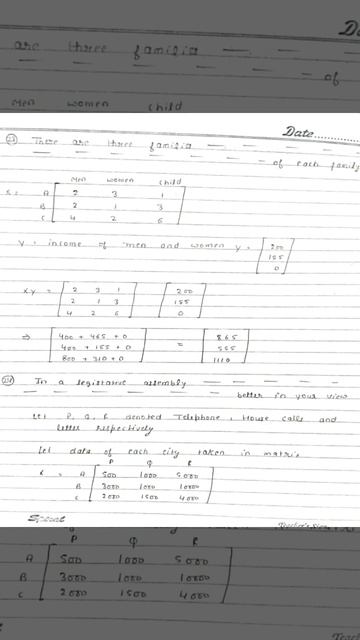 Da
are three familia
- of
men women child
Date............
(21) There are three familia
- of each family
Men women child
X = A [ 2 3 1 ]
B [ 2 1 3 ]
C [ 4 2 6 ]
Y = income of men and women Y = [ 200 155 0 ]
XY = [ 2 3 1 ] [ 200 ]
[ 2 1 3 ] [ 155 ]
[ 4 2 6 ] [ 0 ]
⇒ [ 400 + 465 + 0 ] = [ 865 ]
[ 400 + 155 + 0 ] = [ 555 ]
[ 800 + 310 + 0 ] [ 1110 ]
In a legistative assembly
better in your view
Let P, Q, R denoted Telephone, House calls and
letter respectively
Let data of each city taken in matrix
P Q R
A [ 500 1000 5000 ]
B [ 3000 1000 10000 ]
C [ 2000 1500 4000 ]
Special
P Q R
A [ 500 1000 5000 ]
B [ 3000 1000 10000 ]
C [ 2000 1500 4000 ]